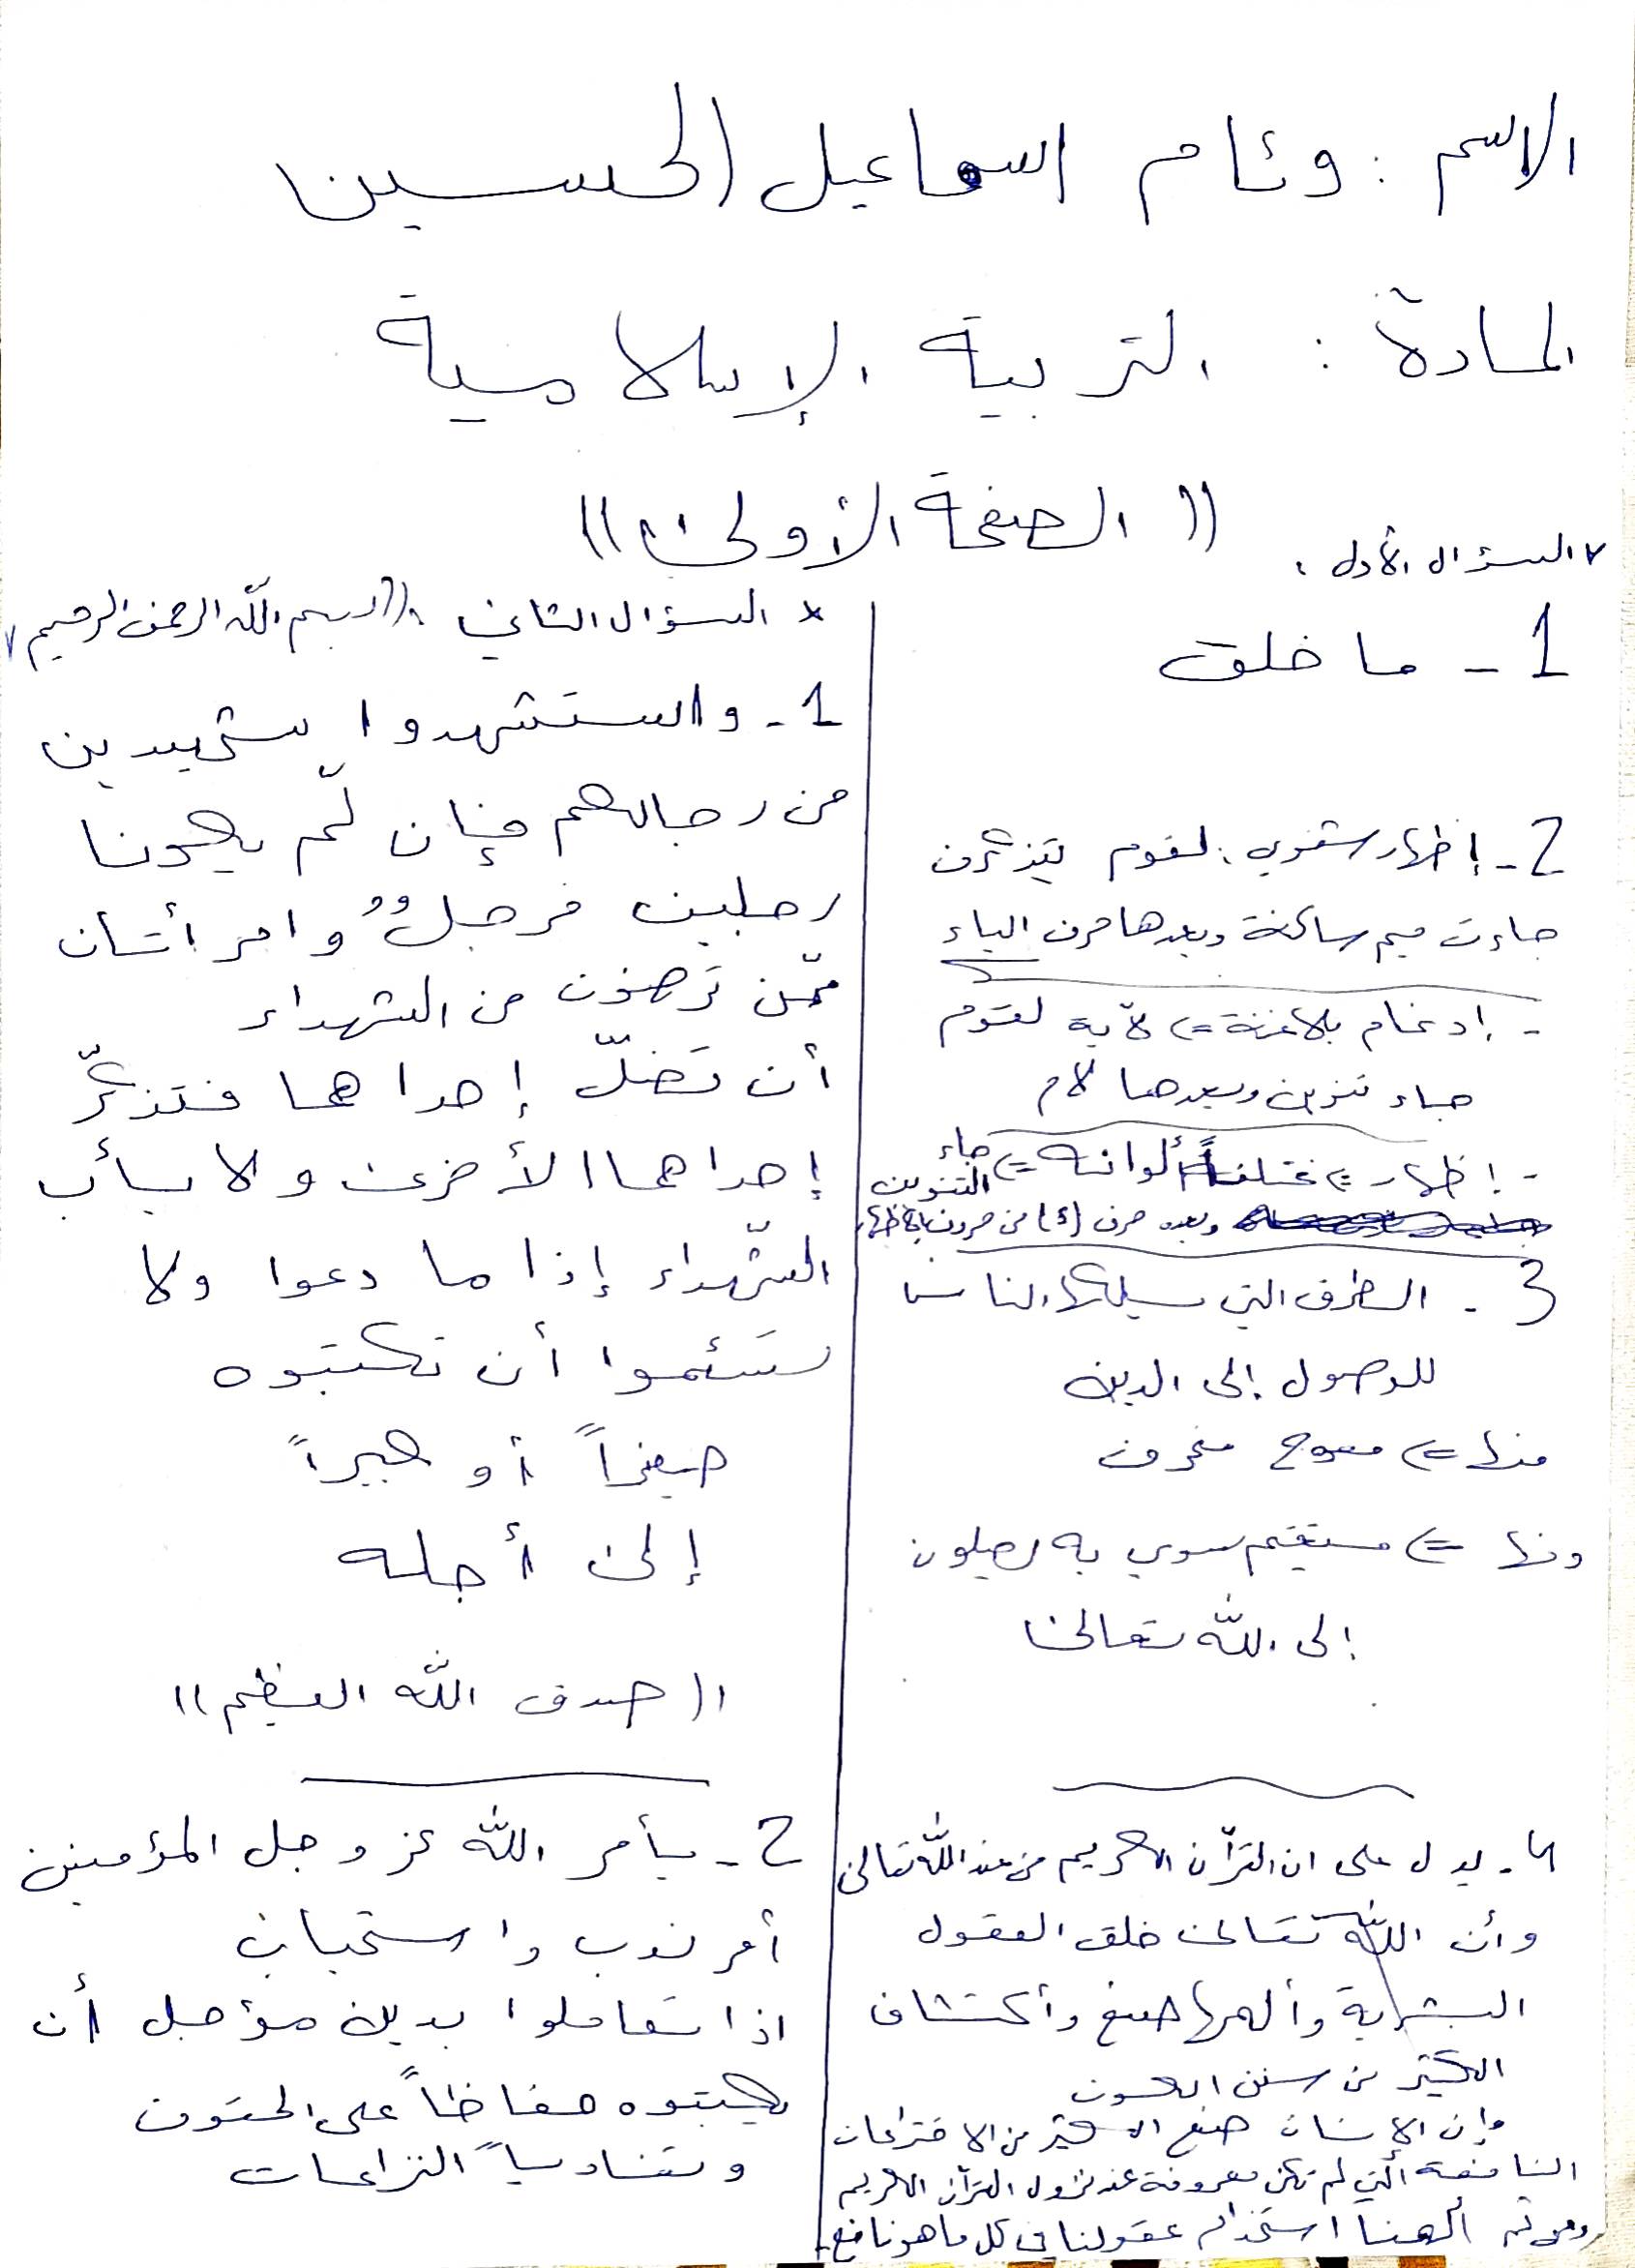 الاسم : وئام اسماعيل الحسين
المادة : التربية الإسلامية
(( الصفحة الأولى ))
* السؤال الأول :
1 - ما خلق
2 - إظهار شفوي : لقوم يذكرون
جاءت ميم ساكنة وبعدها حرف الياء
- إدغام بلاغنة => لآية لقوم
جاء تنوين وبعدها لام
- إظهار => مختلفاً ألوانه => جاء التنوين
وبعده حرف (أ) من حروف الإظهار
3 - الطرق التي يسلكها الناس
للوصول إلى الدين
منها => معوج منحرف
ومنها => مستقيم سوي به يصلون
إلى الله تعالى
4 - يدل على ان القرآن الكريم من عند الله تعالى
وأن الله تعالى خلق العقول
البشرية وألهمها صنع وأكتشاف
الكثير من سنن الكون
وإن الإنسان صنع الكثير من الاختراعات
النافعة التي لم تكن معروفة عند نزول القرآن الكريم
ألهمنا استخدام عقولنا في كل ما هو نافع.
* السؤال الثاني : (( بسم الله الرحمن الرحيم ))
1 - واستشهدوا شهيدين
من رجالكم فإن لّم يكونا
رجلين فرجلٌ وامرأتان
ممّن تَرضون من الشهداء
أن تَضلّ إحداهما فتذكّر
إحداهما الأخرى ولا يأب
الشّهداء إذا ما دعوا ولا
تسَئموا أن تكتبوه
صغيراً أو كبيراً
إلى أجله
(( صدق الله العظيم ))
2 - يأمر الله عز وجل المؤمنين
أمر ندب واستحباب
اذا تعاملوا بدين مؤجل أن
يكتبوه حفاظاً على الحقوق
وتفادياً النزاعات